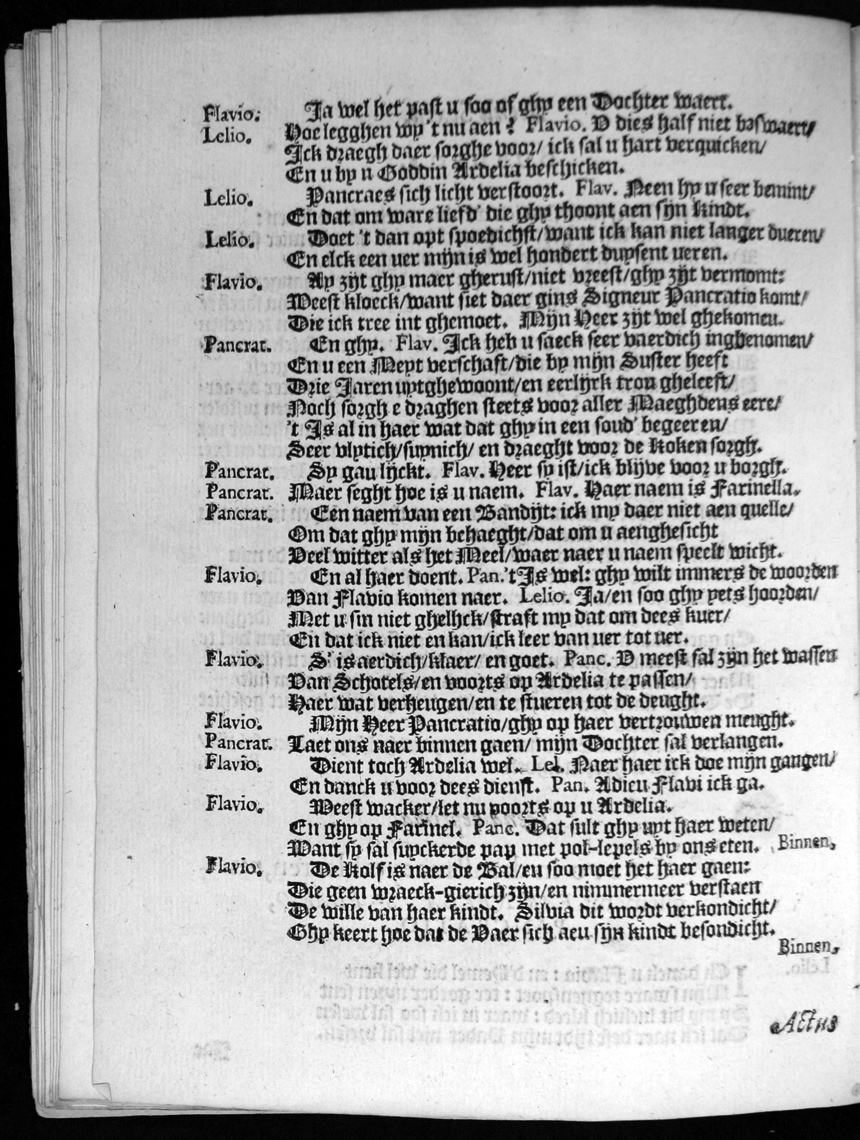 Flavio. Ja wel het past u soo of ghy een Dochter waert.
Lelio. Hoe legghen wy 't nu aen? Flavio. V dies half niet beswaert/
Ick draegh daer sorghe voor/ ick sal u hart verquicken/
En u by u Goddin Ardelia beschicken.
Lelio. Pancraes sich licht verstoort. Flav. Neen hy u seer bemint/
En dat om ware liefd' die ghy thoont aen sijn kindt.
Lelio. Doet 't dan opt spoedichst/want ick kan niet langer dueren/
En elck een uer mijn is wel hondert duysent ueren.
Flavio. Ay zijt ghy maer gherust/niet vreest/ghy zijt vermomt:
Weest kloeck/want siet daer gins Signeur Pancratio komt/
Die ick tree int ghemoet. Mijn Heer zijt wel ghekomen.
Pancrat. En ghy. Flav. Ick heb u saeck seer vaerdich inghenomen/
En u een Meyt verschaft/die by mijn Suster heeft
Drie Jaren uytghewoont/en eerlijck trou gheleeft/
Noch sorgh e draghen steets voor aller Maeghdens eere/
't Is al in haer wat dat ghy in een soud' begeeren/
Seer vlytich/suynich/ en draeght voor de Koken sorgh.
Pancrat. Sy gau lijckt. Flav. Heer sy ist/ick blijve voor u borgh.
Pancrat. Maer seght hoe is u naem. Flav. Haer naem is Farinella.
Pancrat. Een naem van een Bandijt: ick my daer niet aen quelle/
Om dat ghy mijn behaeght/dat om u aenghesicht
Veel witter als het Meel/waer naer u naem speelt wicht.
Flavio. En al haer doent. Pan. 't Is wel: ghy wilt immers de woorden
Van Flavio komen naer. Lelio. Ja/en soo ghy yets hoorden/
Met u sin niet ghelijck/straft my dat om dees kuer/
En dat ick niet en kan/ick leer van uer tot uer.
Flavio. S' is aerdich/klaer/ en goet. Panc. V meest sal zijn het wassen
Van Schotels/en voorts op Ardelia te passen/
Haer wat verheugen/en te stueren tot de deught.
Flavio. Mijn Heer Pancratio/ghy op haer vertrouwen meught.
Pancrat. Laet ons naer binnen gaen/ mijn Dochter sal verlangen.
Flavio. Dient toch Ardelia wel. Lel. Naer haer ick doe mijn gangen/
En danck u voor dees dienst. Pan. Adieu Flavi ick ga.
Flavio. Weest wacker/let nu voorts op u Ardelia.
En ghy op Farinel. Panc. Dat sult ghy uyt haer weten/
Want sy sal suyckerde pap met pol-lepels by ons eten. Binnen.
Flavio. De Kolf is naer de Bal/en soo moet het haer gaen:
Die geen wraeck-gierich zijn/en nimmermeer verstaen
De wille van haer kindt. Silvia dit wordt verkondicht/
Ghy keert hoe dat de Vaer sich aen sijn kindt besondicht.
Binnen.
Actus